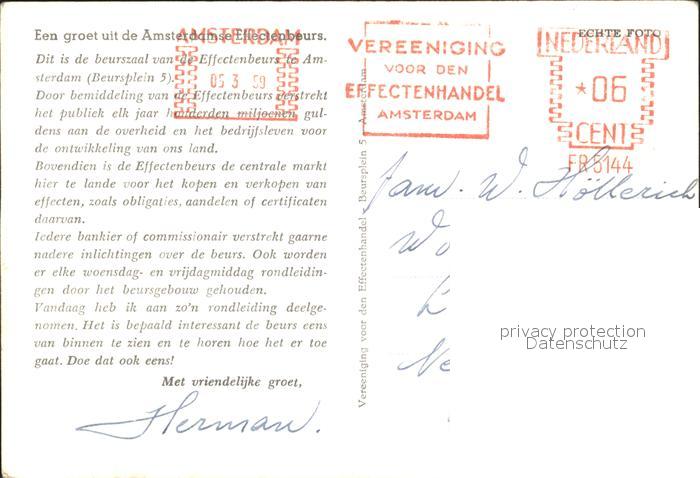 Een groet uit de Amsterdamse Effectenbeurs.
Dit is de beurszaal van de Effectenbeurs te Am-
sterdam (Beursplein 5).
Door bemiddeling van de Effectenbeurs verstrekt
het publiek elk jaar honderden miljoenen gul-
dens aan de overheid en het bedrijfsleven voor
de ontwikkeling van ons land.
Bovendien is de Effectenbeurs de centrale markt
hier te lande voor het kopen en verkopen van
effecten, zoals obligaties, aandelen of certificaten
daarvan.
Iedere bankier of commissionair verstrekt gaarne
nadere inlichtingen over de beurs. Ook worden
er elke woensdag- en vrijdagmiddag rondleidin-
gen door het beursgebouw gehouden.
Vandaag heb ik aan zo'n rondleiding deelge-
nomen. Het is bepaald interessant de beurs eens
van binnen te zien en te horen hoe het er toe
gaat. Doe dat ook eens!
Met vriendelijke groet,
Herman.
AMSTERDAM
05 3 59
VEREENIGING
VOOR DEN
EFFECTENHANDEL
AMSTERDAM
ECHTE FOTO
NEDERLAND
*06
CENT
FR 5144
Vereeniging voor den Effectenhandel - Beursplein 5 - Amsterdam
Fam. W. Höllerich
Wo
Ne
privacy protection
Datenschutz